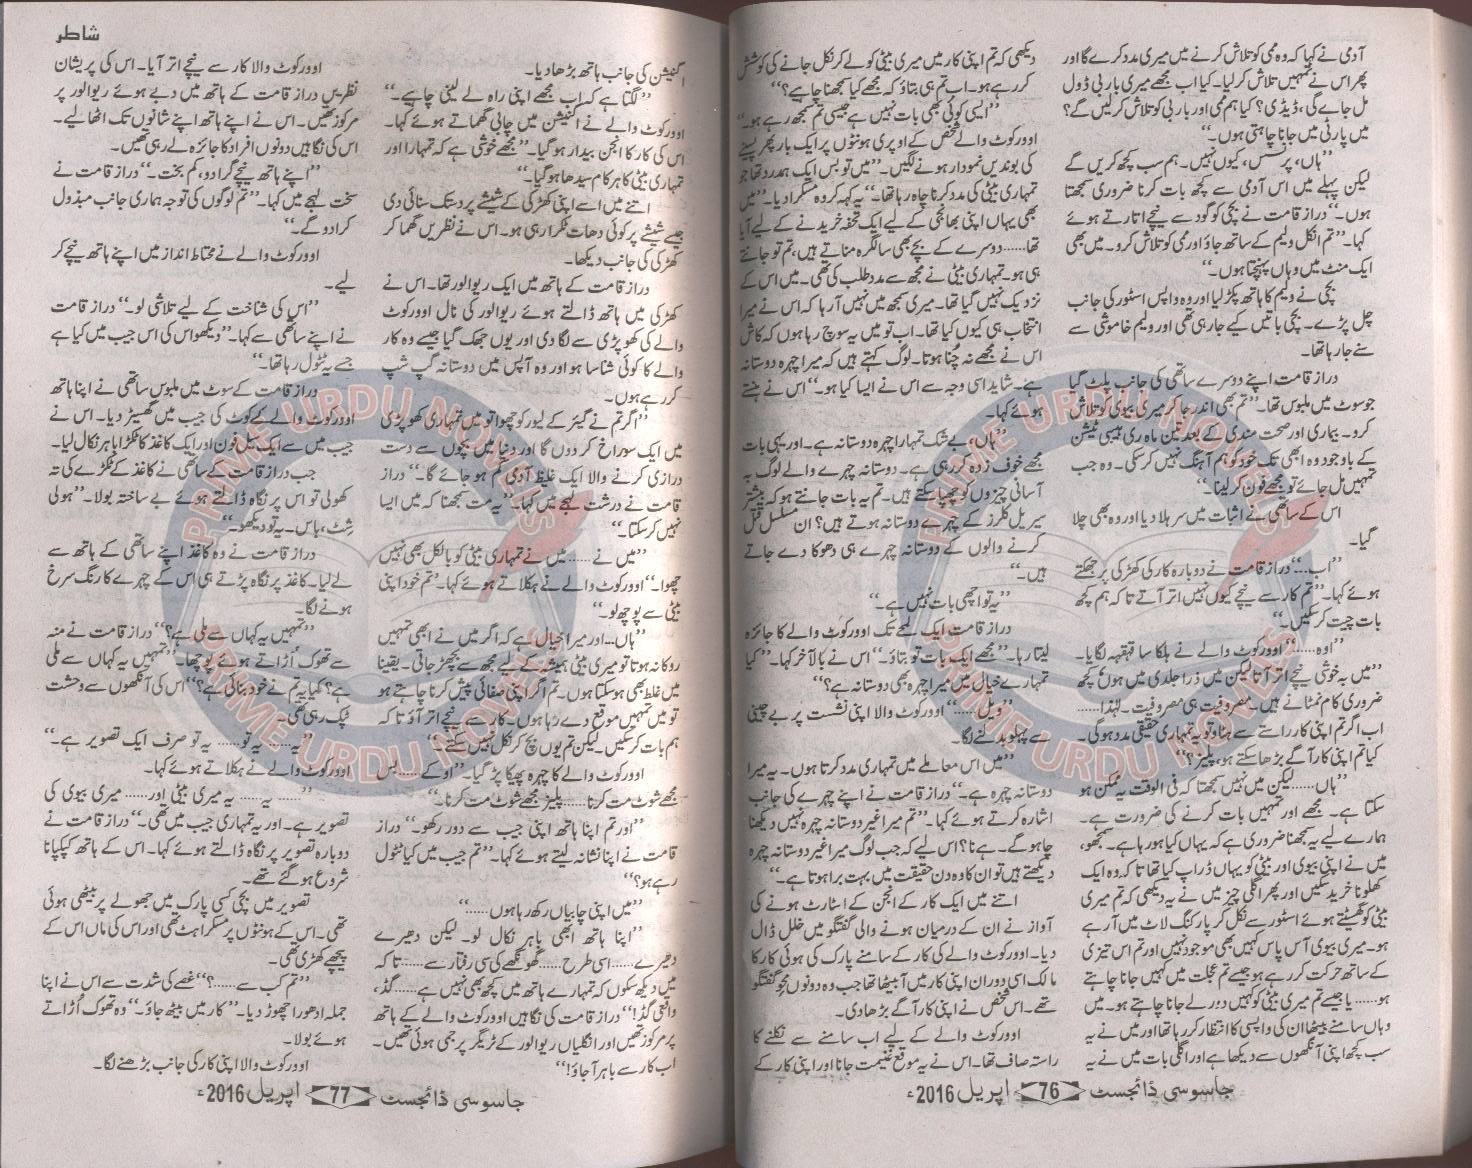 آدمی نے کہا کہ وہ ممی کو تلاش کرنے میں میری مدد کرے گا اور
پھر اس نے تمہیں تلاش کر لیا۔ کیا اب مجھے میری باربی ڈول
مل جائے گی، ڈیڈی؟ کیا ہم ممی اور باربی کو تلاش کر لیں گے؟
میں پارٹی میں جانا چاہتی ہوں۔“
”ہاں، پرنسس، کیوں نہیں۔ ہم سب کچھ کریں گے
لیکن پہلے میں اس آدمی سے کچھ بات کرنا ضروری سمجھتا
ہوں۔“ دراز قامت نے بچی کو گود سے نیچے اتارتے ہوئے
کہا۔ ”تم انکل ولیم کے ساتھ جاؤ اور ممی کو تلاش کرو۔ میں بھی
ایک منٹ میں وہاں پہنچتا ہوں۔“
بچی نے ولیم کا ہاتھ پکڑ لیا اور وہ واپس اسٹور کی جانب
چل پڑے۔ بچی باتیں کیے جا رہی تھی اور ولیم خاموشی سے
سنے جا رہا تھا۔
دراز قامت اپنے دوسرے ساتھی کی جانب پلٹ گیا
جو سوٹ میں ملبوس تھا۔ ”تم بھی اندر جا کر میری بیوی کو تلاش
کرو۔ بیماری اور صحت مندی کے بعد تین ماہ ری ہیبی ٹیشن
کے باوجود وہ ابھی تک خود کو ہم آہنگ نہیں کر سکی۔ وہ جب
تمہیں مل جائے تو مجھے فون کر لینا۔“
اس کے ساتھی نے اثبات میں سر ہلا دیا اور وہ بھی چلا
گیا۔
”اب۔۔“ دراز قامت نے دوبارہ کار کی کھڑکی پر جھکتے
ہوئے کہا۔ ”تم کار سے نیچے کیوں نہیں اتر آتے تاکہ ہم کچھ
بات چیت کر سکیں۔“
”اوہ......“ اوورکوٹ والے نے ہلکا سا قہقہہ لگایا۔
”میں بہ خوشی نیچے اتر آتا لیکن میں ذرا جلدی میں ہوں، کچھ
ضروری کام نمٹانے ہیں۔ مصروفیت ہی مصروفیت۔ لہٰذا......
اب اگر تم اپنی کار راستے سے ہٹا دو تو یہ تمہاری حقیقی مدد ہو گی۔
کیا تم اپنی کار آگے بڑھا سکتے ہو، پلیز؟“
”ہاں...... لیکن میں نہیں سمجھتا کہ فی الوقت یہ ممکن ہو
سکتا ہے۔ مجھے اور تمہیں بات کرنے کی ضرورت ہے۔
ہمارے لیے یہ سمجھنا ضروری ہے کہ یہاں کیا ہو رہا ہے۔ سمجھو،
میں نے اپنی بیوی اور بیٹی کو یہاں ڈراپ کیا تھا تاکہ وہ ایک
کھلونا خرید سکیں اور پھر اگلی چیز میں نے یہ دیکھی کہ تم میری
بیٹی کو گھسیٹتے ہوئے اسٹور سے نکل کر پارکنگ لاٹ میں آ رہے
ہو۔ میری بیوی آس پاس کہیں بھی موجود نہیں اور تم اس تیزی
کے ساتھ حرکت کر رہے ہو جیسے تم عجلت میں کہیں جانا چاہتے
ہو...... یا جیسے تم میری بیٹی کو کہیں دور لے جانا چاہتے ہو۔ میں
وہاں سامنے بیٹھا ان کی واپسی کا انتظار کر رہا تھا اور میں نے یہ
سب کچھ اپنی آنکھوں سے دیکھا ہے اور اگلی بات میں نے یہ
دیکھی کہ تم اپنی کار میں میری بیٹی کو لے کر نکل جانے کی کوشش
کر رہے ہو۔ اب تم ہی بتاؤ کہ مجھے کیا سمجھنا چاہیے؟“
”ایسی کوئی بھی بات نہیں ہے جیسی تم سمجھ رہے ہو۔“
اوورکوٹ والے شخص کے اوپری ہونٹوں پر ایک بار پھر پسینے
کی بوندیں نمودار ہونے لگیں۔ ”میں تو بس ایک ہمدرد تھا جو
تمہاری بیٹی کی مدد کرنا چاہ رہا تھا۔“ یہ کہہ کر وہ مسکرا دیا۔ ”میں
بھی یہاں اپنی بھانجی کے لیے ایک تحفہ خریدنے کے لیے آیا
تھا...... دوسرے کے بچے بھی سالگرہ مناتے ہیں، تم تو جانتے
ہی ہو۔ تمہاری بیٹی نے مجھ سے مدد طلب کی تھی۔ میں اس کے
نزدیک نہیں گیا تھا۔ میری سمجھ میں نہیں آ رہا کہ اس نے میرا
انتخاب ہی کیوں کیا تھا۔ اب تو میں یہ سوچ رہا ہوں کہ کاش
اس نے مجھے نہ چُنا ہوتا۔ لوگ کہتے ہیں کہ میرا چہرہ دوستانہ
ہے۔ شاید اسی وجہ سے اس نے ایسا کیا ہو۔“ اس نے ہنستے
ہوئے کہا۔
”ہاں، بے شک تمہارا چہرہ دوستانہ ہے۔ اور یہی بات
مجھے خوف زدہ کر رہی ہے۔ دوستانہ چہرے والے لوگ بہ
آسانی چیزوں کو چھپا سکتے ہیں۔ تم یہ بات جانتے ہو کہ بیشتر
سیریل کلرز کے چہرے دوستانہ ہوتے ہیں؟ ان مسلسل قتل
کرنے والوں کے دوستانہ چہرے ہی دھوکا دے جاتے
ہیں۔“
”یہ تو اچھی بات نہیں ہے۔“
دراز قامت ایک لمحے تک اوورکوٹ والے کا جائزہ
لیتا رہا۔ ”مجھے ایک بات تو بتاؤ۔“ اس نے بالآخر کہا۔ ”کیا
تمہارے خیال میں میرا چہرہ بھی دوستانہ ہے؟“
”ویل......“ اوورکوٹ والا اپنی نشست پر بے چینی
سے پہلو بدلنے لگا۔
”میں اس معاملے میں تمہاری مدد کرتا ہوں۔ یہ میرا
دوستانہ چہرہ ہے۔“ دراز قامت نے اپنے چہرے کی جانب
اشارہ کرتے ہوئے کہا۔ ”تم میرا غیر دوستانہ چہرہ نہیں دیکھنا
چاہو گے۔ ہے نا؟ اس لیے کہ جب لوگ میرا غیر دوستانہ چہرہ
دیکھتے ہیں تو ان کا وہ دن حقیقت میں بہت برا ہوتا ہے۔“
اتنے میں ایک کار کے انجن کے اسٹارٹ ہونے کی
آواز نے ان کے درمیان ہونے والی گفتگو میں خلل ڈال
دیا۔ اوورکوٹ والے کی کار کے سامنے پارک کی ہوئی کار کا
مالک اسی دوران اپنی کار میں آ بیٹھا تھا جب وہ دونوں محوِ گفتگو
تھے۔ اس شخص نے اپنی کار آگے بڑھا دی۔
اوورکوٹ والے کے لیے اب سامنے سے نکلنے کا
راستہ صاف تھا۔ اس نے یہ موقع غنیمت جانا اور اپنی کار کے
جاسوسی ڈائجسٹ 76 اپریل 2016ء
شاطر
اگنیشن کی جانب ہاتھ بڑھا دیا۔
”لگتا ہے کہ اب مجھے اپنی راہ لے لینی چاہیے۔“
اوورکوٹ والے نے اگنیشن میں چابی گھماتے ہوئے کہا۔
اس کی کار کا انجن بیدار ہو گیا۔ ”مجھے خوشی ہے کہ تمہارا اور
تمہاری بیٹی کا ہر کام سیدھا ہو گیا۔“
اتنے میں اسے اپنی کھڑکی کے شیشے پر دستک سنائی دی
جیسے شیشے پر کوئی دھات ٹکرا رہی ہو۔ اس نے نظریں گھما کر
کھڑکی کی جانب دیکھا۔
دراز قامت کے ہاتھ میں ایک ریوالور تھا۔ اس نے
کھڑکی میں ہاتھ ڈالتے ہوئے ریوالور کی نال اوورکوٹ
والے کی کھوپڑی سے لگا دی اور یوں جھک گیا جیسے وہ کار
والے کا کوئی شناسا ہو اور وہ آپس میں دوستانہ گپ شپ
کر رہے ہوں۔
”اگر تم نے گیئر کے لیور کو چھوا تو میں تمہاری کھوپڑی
میں ایک سوراخ کر دوں گا اور دنیا میں بچوں سے دست
درازی کرنے والا ایک غلیظ آدمی کم ہو جائے گا۔“ دراز
قامت نے درشت لہجے میں کہا۔ ”یہ مت سمجھنا کہ میں ایسا
نہیں کر سکتا۔“
”میں نے...... میں نے تمہاری بیٹی کو بالکل بھی نہیں
چھوا۔“ اوورکوٹ والے نے ہکلاتے ہوئے کہا۔ ”تم خود اپنی
بیٹی سے پوچھ لو۔“
”ہاں۔۔ اور میرا خیال ہے کہ اگر میں نے ابھی تمہیں
روکا نہ ہوتا تو میری بیٹی ہمیشہ کے لیے مجھ سے بچھڑ جاتی۔ یقینا
میں غلط بھی ہو سکتا ہوں۔ تم اگر اپنی صفائی پیش کرنا چاہتے ہو
تو میں تمہیں موقع دے رہا ہوں۔ کار سے نیچے اتر آؤ تاکہ
ہم بات کر سکیں۔ لیکن تم یوں بچ کر نکل نہیں سکتے۔“
اوورکوٹ والے کا چہرہ پھیکا پڑ گیا۔ ”اوکے...... بس
مجھے شوٹ مت کرنا...... پلیز مجھے شوٹ مت کرنا۔“
”اور تم اپنا ہاتھ اپنی جیب سے دور رکھو۔“ دراز
قامت نے اپنا نشانہ لیتے ہوئے کہا۔ ”تم جیب میں کیا ٹٹول
رہے ہو؟“
”میں اپنی چابیاں رکھ رہا ہوں......“
”اپنا ہاتھ ابھی باہر نکال لو۔ لیکن دھیرے
دھیرے...... اسی طرح...... گھونگھے کی سی رفتار سے...... تاکہ
میں دیکھ سکوں کہ تمہارے ہاتھ میں کچھ بھی نہیں ہے...... گڈ،
واقعی گڈ!“ دراز قامت کی نگاہیں اوورکوٹ والے کے ہاتھ
پر مرکوز تھیں اور انگلیاں ریوالور کے ٹریگر پر جمی ہوئی تھیں۔
اب کار سے باہر آ جاؤ!“
اوورکوٹ والا کار سے نیچے اتر آیا۔ اس کی پریشان
نظریں دراز قامت کے ہاتھ میں دبے ہوئے ریوالور پر
مرکوز تھیں۔ اس نے اپنے ہاتھ اپنے شانوں تک اٹھا لیے۔
اس کی نگاہیں دونوں افراد کا جائزہ لے رہی تھیں۔
”اپنے ہاتھ نیچے گرا دو، کم بخت۔“ دراز قامت نے
سخت لہجے میں کہا۔ ”تم لوگوں کی توجہ ہماری جانب مبذول
کرا دو گے۔“
اوورکوٹ والے نے محتاط انداز میں اپنے ہاتھ نیچے کر
لیے۔
”اس کی شناخت کے لیے تلاشی لو۔“ دراز قامت
نے اپنے ساتھی سے کہا۔ ”دیکھو اس کی اس جیب میں کیا ہے
جسے یہ ٹٹول رہا تھا۔“
دراز قامت کے سوٹ میں ملبوس ساتھی نے اپنا ہاتھ
اوورکوٹ والے کے کوٹ کی جیب میں گھسیڑ دیا۔ اس نے
جیب میں سے ایک سیل فون اور ایک کاغذ کا ٹکڑا باہر نکال لیا۔
جب دراز قامت کے ساتھی نے کاغذ کے ٹکڑے کی تہ
کھولی تو اس پر نگاہ ڈالتے ہوئے بے ساختہ بولا۔ ”ہولی
شِٹ، باس۔ یہ تو دیکھو۔“
دراز قامت نے وہ کاغذ اپنے ساتھی کے ہاتھ سے
لے لیا۔ کاغذ پر نگاہ پڑتے ہی اس کے چہرے کا رنگ سرخ
ہونے لگا۔
”تمہیں یہ کہاں سے ملی ہے؟“ دراز قامت نے منہ
سے تھوک اُڑاتے ہوئے پوچھا۔ ”تمہیں یہ کہاں سے ملی
ہے؟ کیا یہ تم نے خود بنائی ہے؟“ اس کی آنکھوں سے وحشت
ٹپک رہی تھی۔
”یہ...... یہ تو...... یہ تو صرف ایک تصویر ہے۔“
اوورکوٹ والے نے ہکلاتے ہوئے کہا۔
”...... یہ...... یہ میری بیٹی اور...... میری بیوی کی
تصویر ہے۔ اور یہ تمہاری جیب میں تھی۔“ دراز قامت نے
دوبارہ تصویر پر نگاہ ڈالتے ہوئے کہا۔ اس کے ہاتھ کپکپانا
شروع ہو گئے تھے۔
تصویر میں بچی کسی پارک میں جھولے پر بیٹھی ہوئی
تھی۔ اس کے ہونٹوں پر مسکراہٹ تھی اور اس کی ماں اس کے
پیچھے کھڑی تھی۔
”تم کب سے......؟“ غصے کی شدت سے اس نے اپنا
جملہ ادھورا چھوڑ دیا۔ ”کار میں بیٹھ جاؤ۔“ وہ تھوک اُڑاتے
ہوئے بولا۔
اوورکوٹ والا اپنی کار کی جانب بڑھنے لگا۔
جاسوسی ڈائجسٹ 77 اپریل 2016ء
PRIME URDU NOVELS
PRIME URDU NOVELS
PRIME URDU NOVELS
PRIME URDU NOVELS